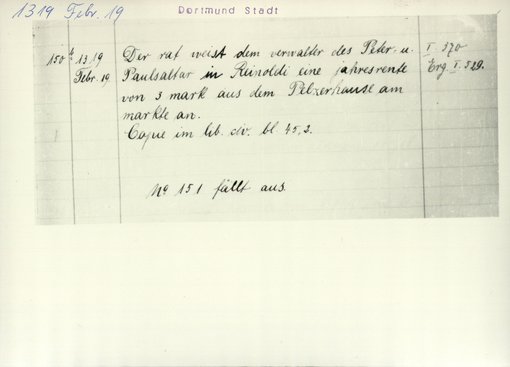 1319 Febr. 19
Dortmund Stadt
150b 1319 Febr. 19
Der rat weist dem verwalter des Peter- u.
Paulsaltar in Reinoldi eine jahresrente
von 3 mark aus dem Pelzerhause am
markte an.
Copie im lib. civ. bl. 45,2.
I. 370
Erg I. 529.
No 151 fällt aus.